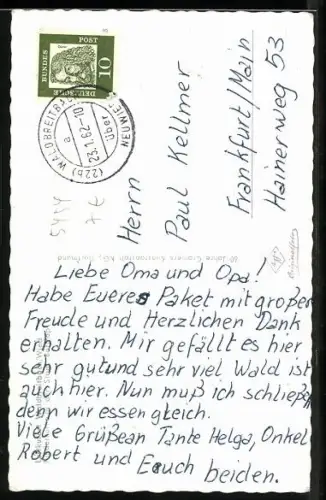 DEUTSCHE
BUNDES
POST
10
(22b) WALDBREITBACH
über NEUWIED
23.1.62-10
a
Herrn
Paul Kellmer
Frankfurt/Main
Hainerweg 53
5454
7€
Liebe Oma und Opa!
Habe Eueres Paket mit großer
Freude und Herzlichen Dank
erhalten. Mir gefällt es hier
sehr gut und sehr viel Wald ist
auch hier. Nun muß ich schließen
denn wir essen gleich.
Viele Grüße an Tante Helga, Onkel
Robert und Euch beiden.